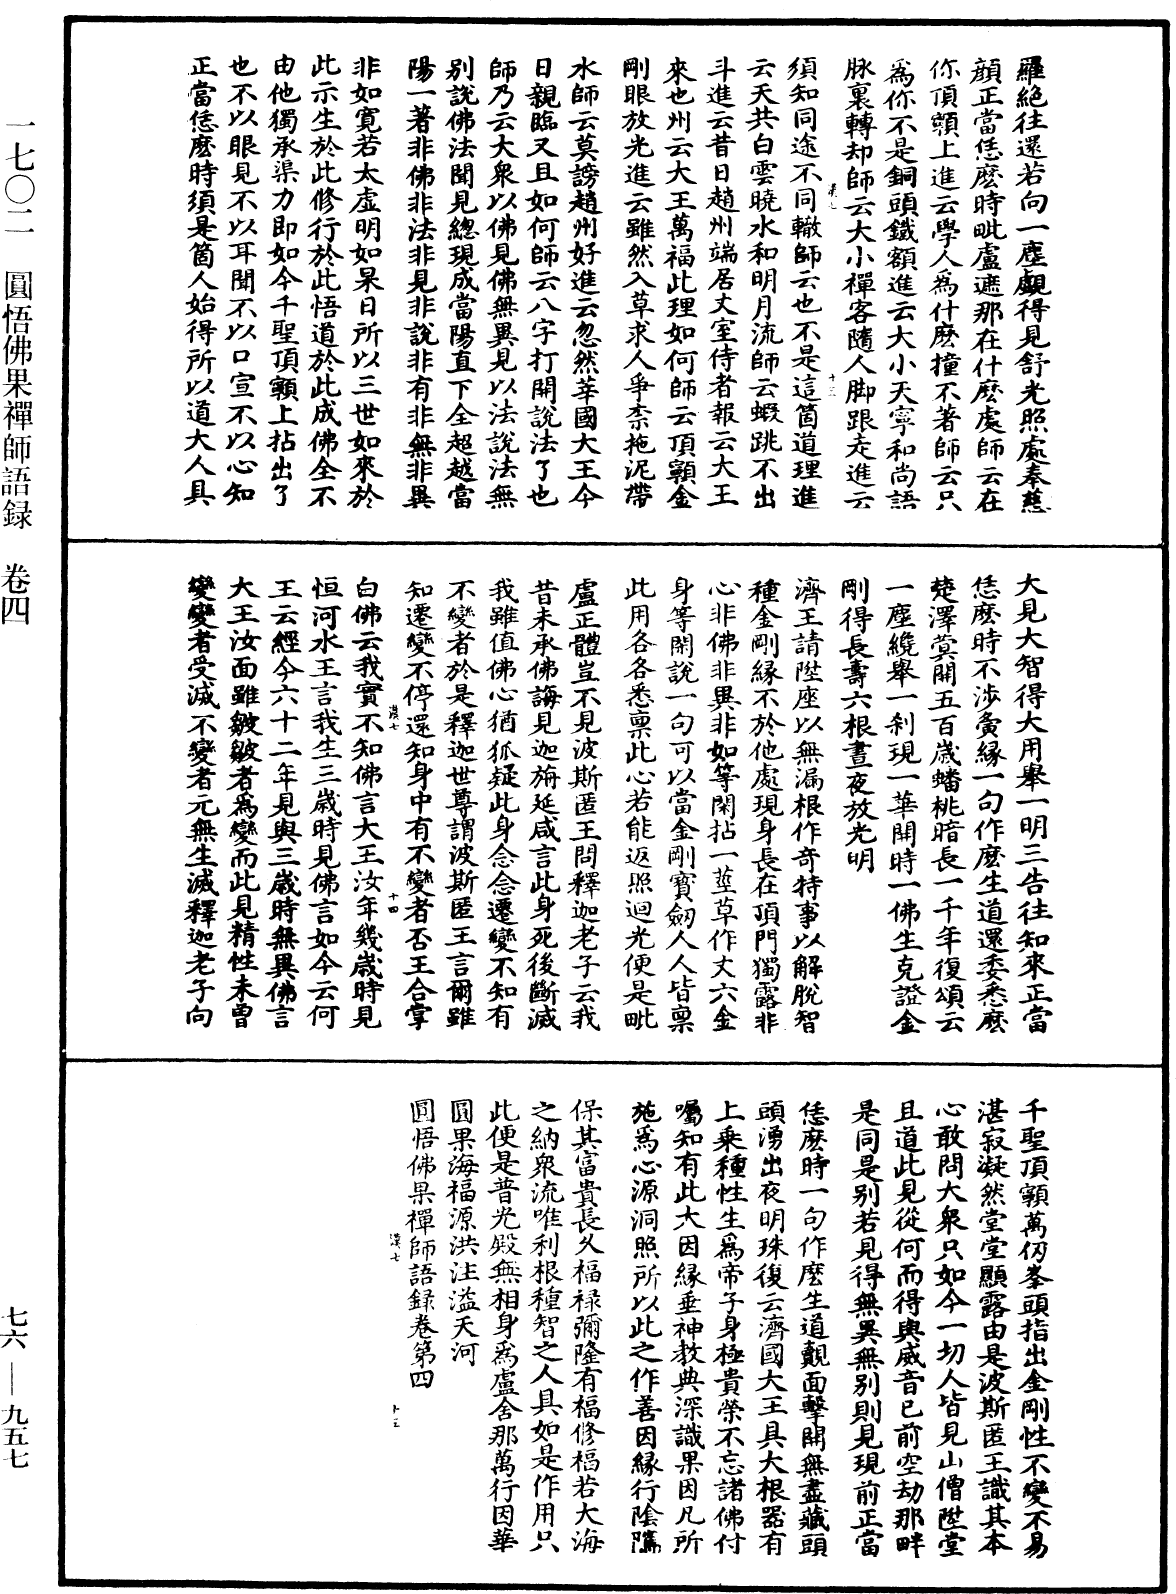 一七〇二 圓悟佛果禪師語録 卷四
七六—九五七
羅絶往還若向一塵覷得見舒光照處奉慈
顔正當恁麽時毗盧遮那在什麽處師云在
你頂顙上進云學人爲什麽撞不著師云只
爲你不是銅頭鐵額進云大小天寧和尚語
脉裏轉却師云大小禪客隨人脚跟走進云
須知同途不同轍師云也不是這箇道理進
云天共白雲曉水和明月流師云蝦跳不出
斗進云昔日趙州端居丈室侍者報云大王
來也州云大王萬福此理如何師云頂顙金
剛眼放光進云雖然入草求人爭柰拖泥帶
水師云莫謗趙州好進云忽然華國大王今
日親臨又且如何師云八字打開說法了也
師乃云大衆以佛見佛無異見以法說法無
别說佛法聞見總現成當陽直下全超越當
陽一著非佛非法非見非說非有非無非異
非如寬若太虚明如杲日所以三世如來於
此示生於此修行於此悟道於此成佛全不
由他獨承渠力即如今千聖頂顙上拈出了
也不以眼見不以耳聞不以口宣不以心知
正當恁麽時須是箇人始得所以道大人具
漢七
十三
大見大智得大用舉一明三告往知來正當
恁麽時不涉夤緣一句作麽生道還委悉麽
楚澤蓂開五百歲蟠桃暗長一千年復頌云
一塵纔舉一刹現一華開時一佛生克證金
剛得長壽六根晝夜放光明
濟王請陞座以無漏根作奇特事以解脫智
種金剛緣不於他處現身長在頂門獨露非
心非佛非異非如等閑拈一莖草作丈六金
身等閑說一句可以當金剛寶劒人人皆稟
此用各各悉稟此心若能返照迴光便是毗
盧正體豈不見波斯匿王問釋迦老子云我
昔未承佛誨見迦旃延咸言此身死後斷滅
我雖值佛心猶狐疑此身念念遷變不知有
不變者於是釋迦世尊謂波斯匿王言爾雖
知遷變不停還知身中有不變者否王合掌
白佛云我實不知佛言大王汝年幾歲時見
恒河水王言我生三歲時見佛言如今云何
王云經今六十二年見與三歲時無異佛言
大王汝面雖皺皺者爲變而此見精性未曾
變變者受滅不變者元無生滅釋迦老子向
漢七
十四
千聖頂顙萬仭峯頭指出金剛性不變不易
湛寂凝然堂堂顯露由是波斯匿王識其本
心敢問大衆只如今一切人皆見山僧陞堂
且道此見從何而得與威音已前空劫那畔
是同是别若見得無異無别則見現前正當
恁麽時一句作麽生道覿面擊開無盡藏頭
頭湧出夜明珠復云濟國大王具大根器有
上乘種性生爲帝子身極貴榮不忘諸佛付
囑知有此大因緣垂神教典深識果因凡所
施爲心源洞照所以此之作善因緣行陰隲
保其富貴長久福禄彌隆有福修福若大海
之納衆流唯利根種智之人具如是作用只
此便是普光殿無相身爲盧舍那萬行因華
圓果海福源洪注溢天河
圓悟佛果禪師語録卷第四
漢七
十五